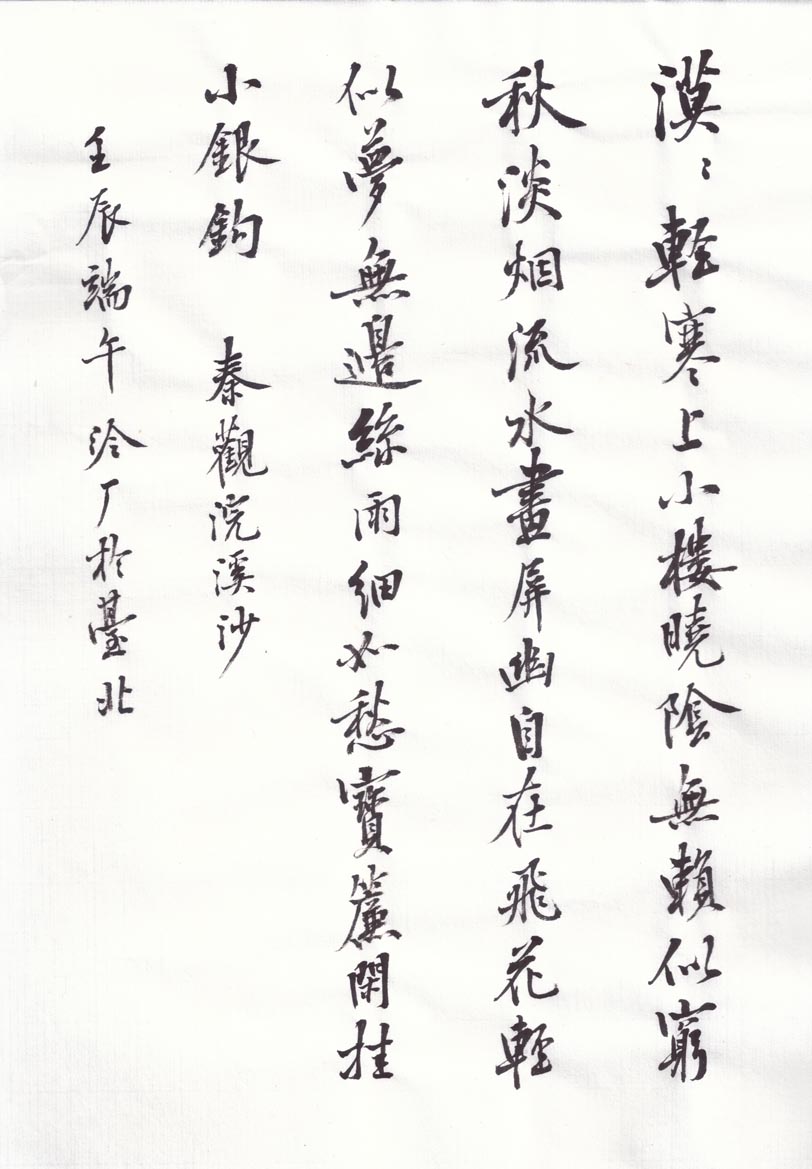 漠〻輕寒上小樓曉陰無賴似窮
秋淡烟流水畫屏幽自在飛花輕
似夢無邊絲雨細如愁寶簾閑挂
小銀鈎 秦觀浣溪沙
壬辰端午泠厂於臺北